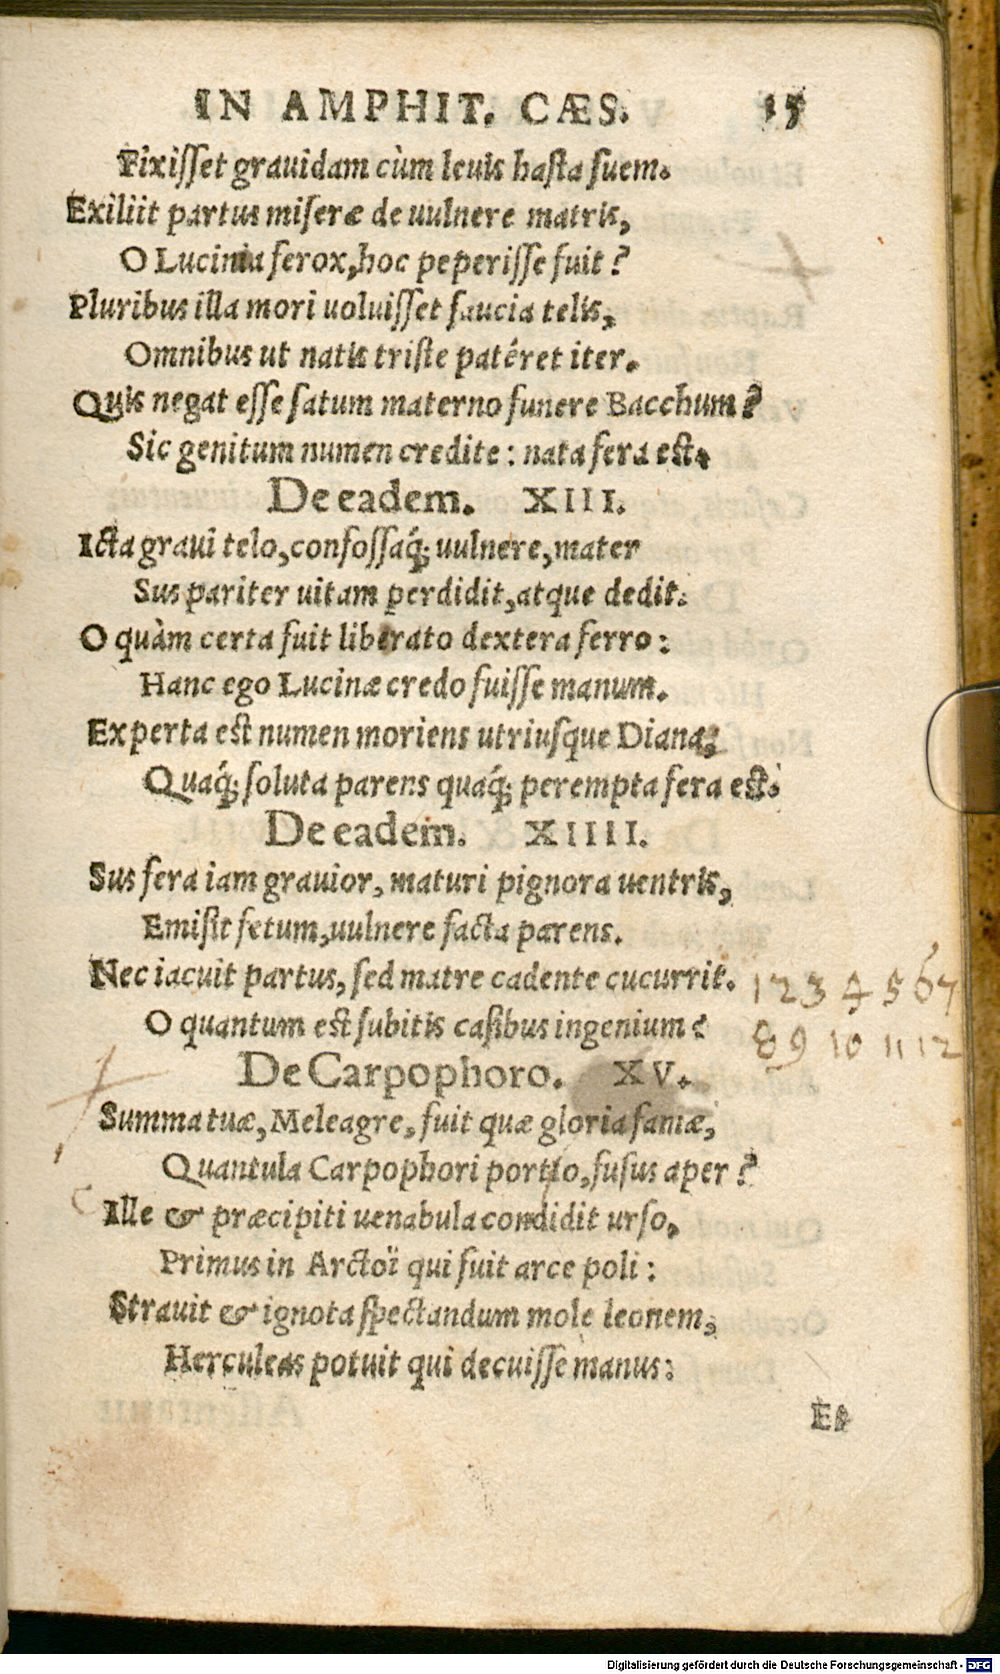 IN AMPHIT. CÆS. 15
Fixisset grauidam cùm leuis hasta suem.
Exiliit partus miseræ de uulnere matris,
O Lucinia ferox, hoc peperisse fuit?
Pluribus illa mori uoluisset saucia telis,
Omnibus ut natis triste patéret iter.
Quis negat esse satum materno funere Bacchum?
Sic genitum numen credite: nata fera est.
De eadem. XIII.
Icta graui telo, confossaq́; uulnere, mater
Sus pariter uitam perdidit, atque dedit.
O quàm certa fuit liberato dextera ferro:
Hanc ego Lucinæ credo fuisse manum.
Experta est numen moriens utriusque Dianæ,
Quaq́; soluta parens quaq́; perempta fera est.
De eadem. XIIII.
Sus fera iam grauior, maturi pignora uentris,
Emisit fetum, uulnere facta parens.
Nec iacuit partus, sed matre cadente cucurrit.
1 2 3 4 5 6 7
O quantum est subitis casibus ingenium?
8 9 10 11 12
De Carpophoro. XV.
Summa tuæ, Meleagre, fuit quæ gloria famæ,
Quantula Carpophori portio, fusus aper?
Ille & præcipiti uenabula condidit urso,
Primus in Arctoï qui fuit arce poli:
Strauit & ignota spectandum mole leonem,
Herculeas potuit qui decuisse manus:
Et
Digitalisierung gefördert durch die Deutsche Forschungsgemeinschaft - DFG